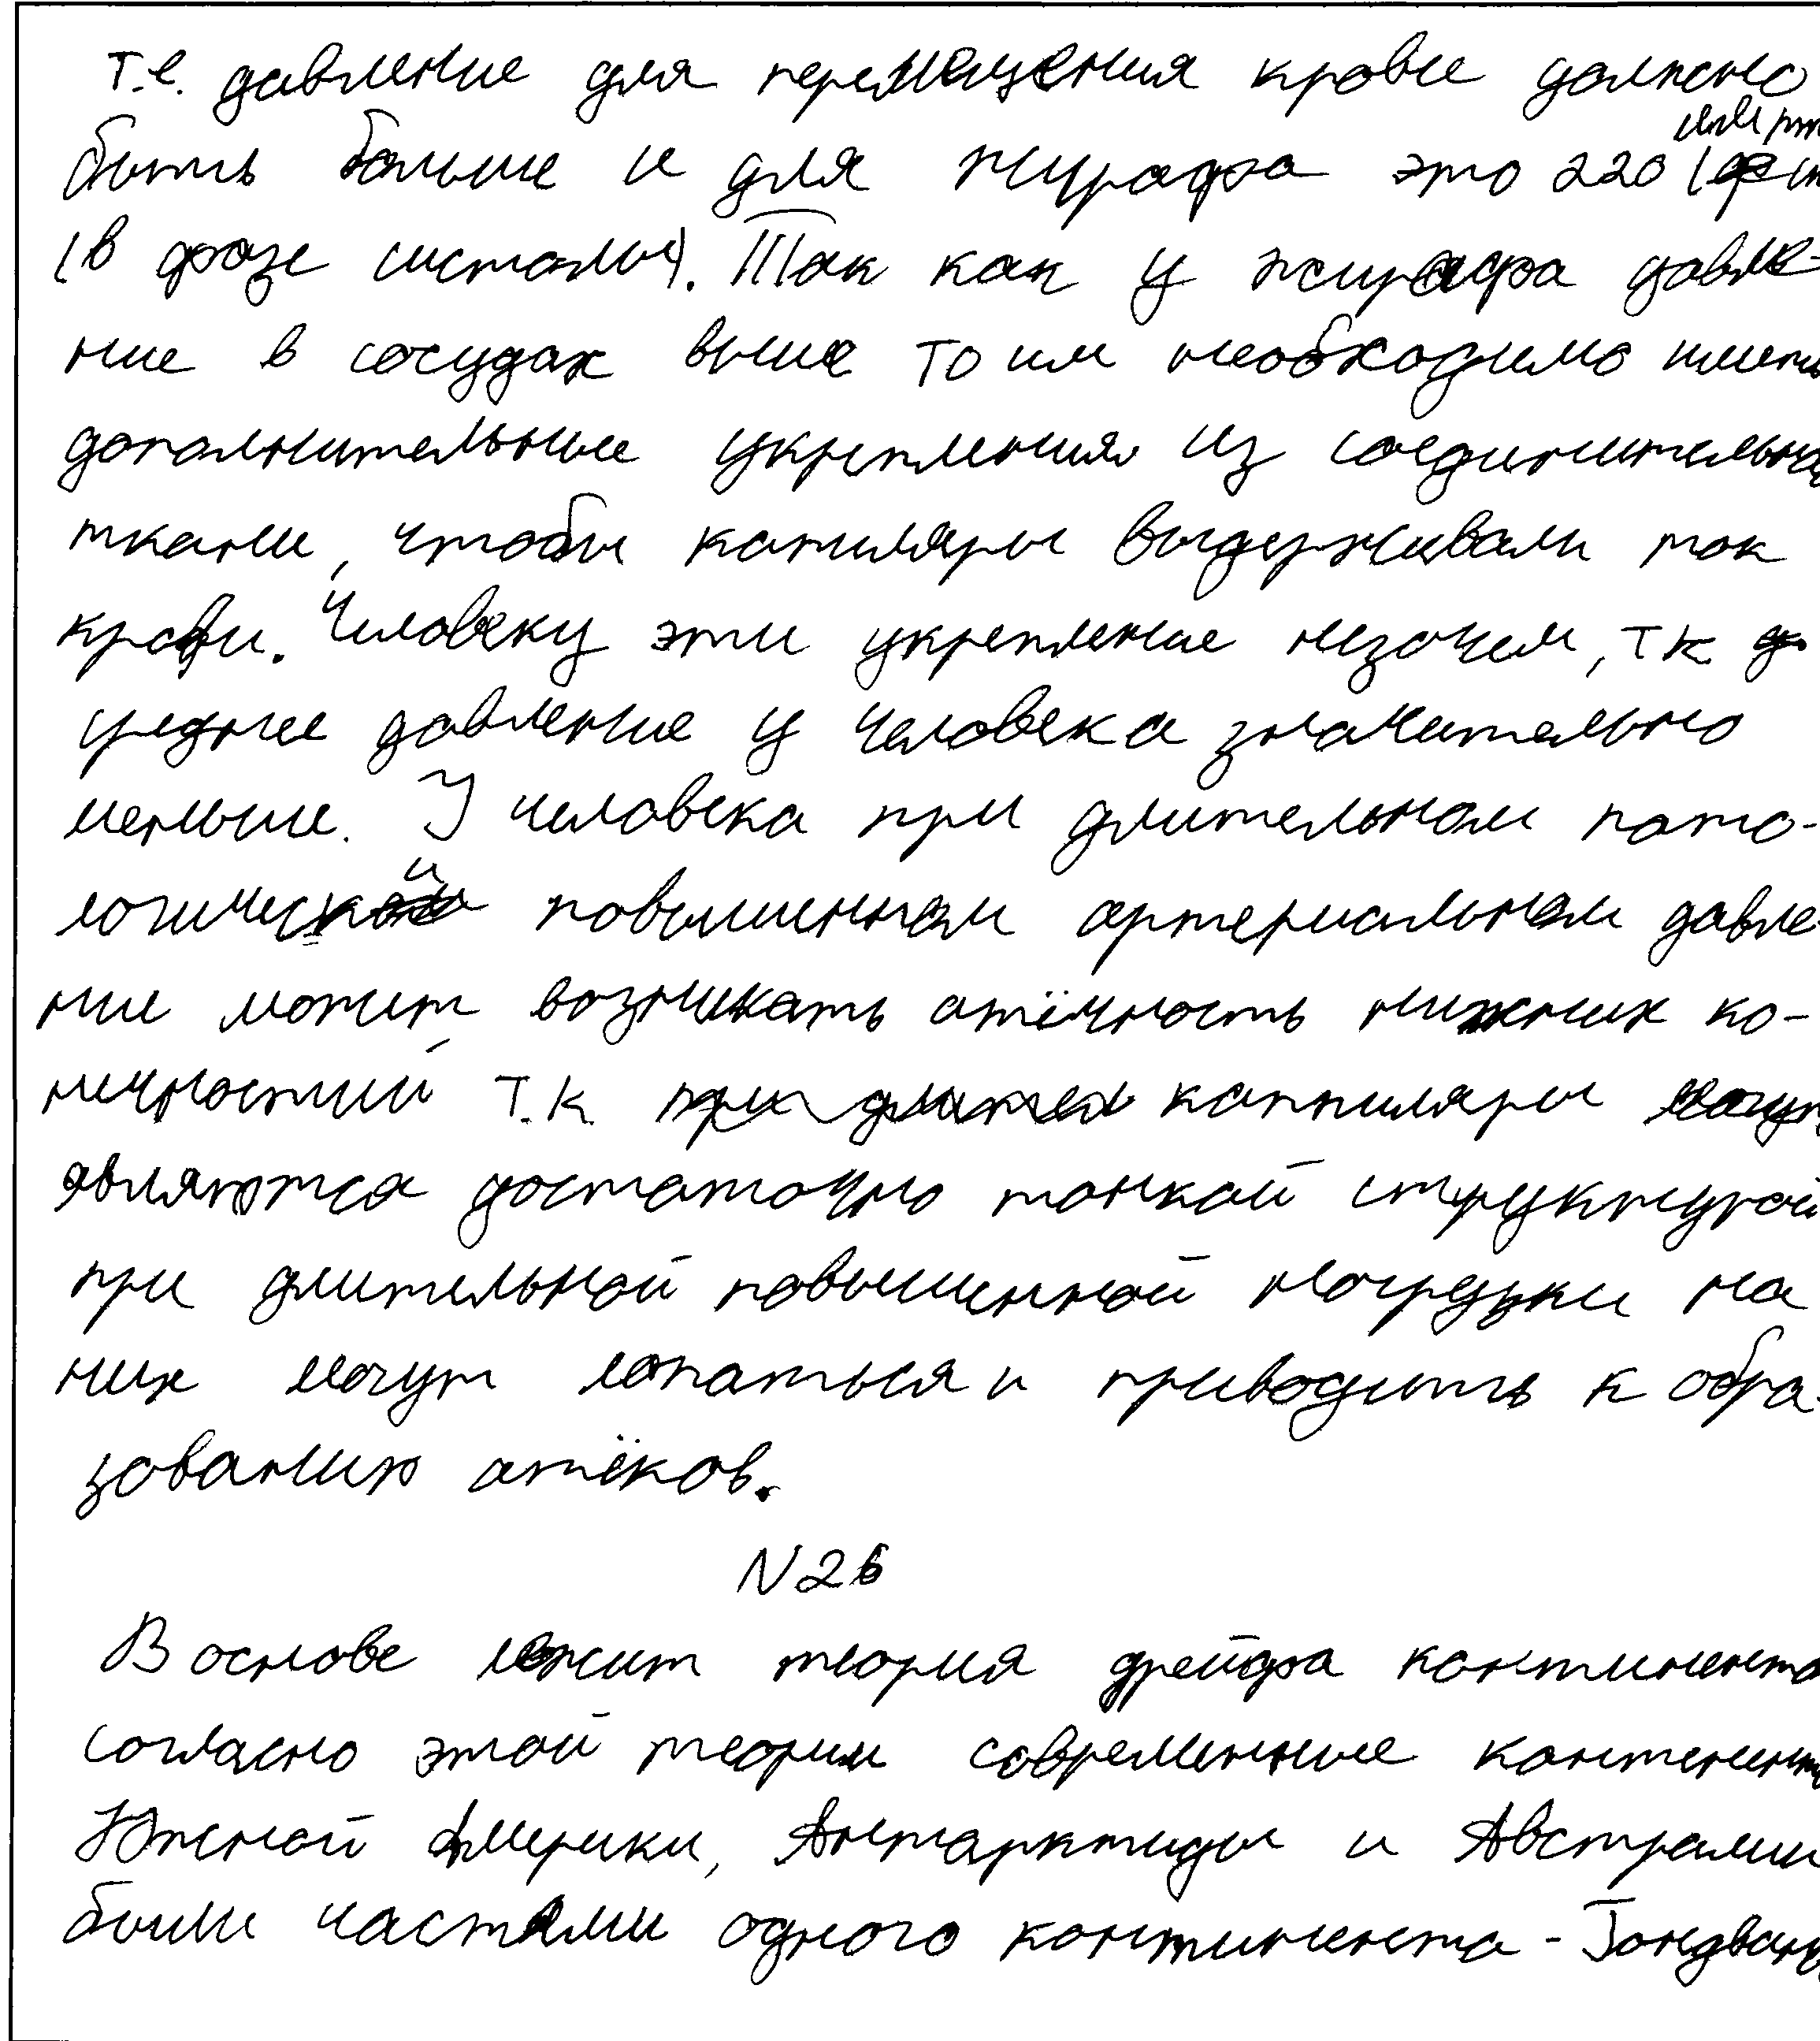 т.е. давление для перемещения крови должно
быть больше и для жирафа это 220
(в фазе систолы). Так как у жирафа давле-
ние в сосудах выше то им необходимо иметь
дополнительные укрепления из соединительн
ткани, чтобы капиляры выдерживали ток
крови. Человеку эти укрепление незачем, т к
среднее давление у человека значительно
меньше. У человека при длительном пато-
логический повышенном артериальном давле-
ние может возникать отёчность нижних ко-
нечностий т.к капиляры
являются достаточно тонкой структурой
при длительной повышенной нагрузки на
них могут лопаться и приводить к обра-
зованию отёков.
N26
В основе лежит теория дрейфа континенто
согласно этой теории современные континенты
Южной Америки, Антарктиды и Австралии
были частями одного континента - Гондваны